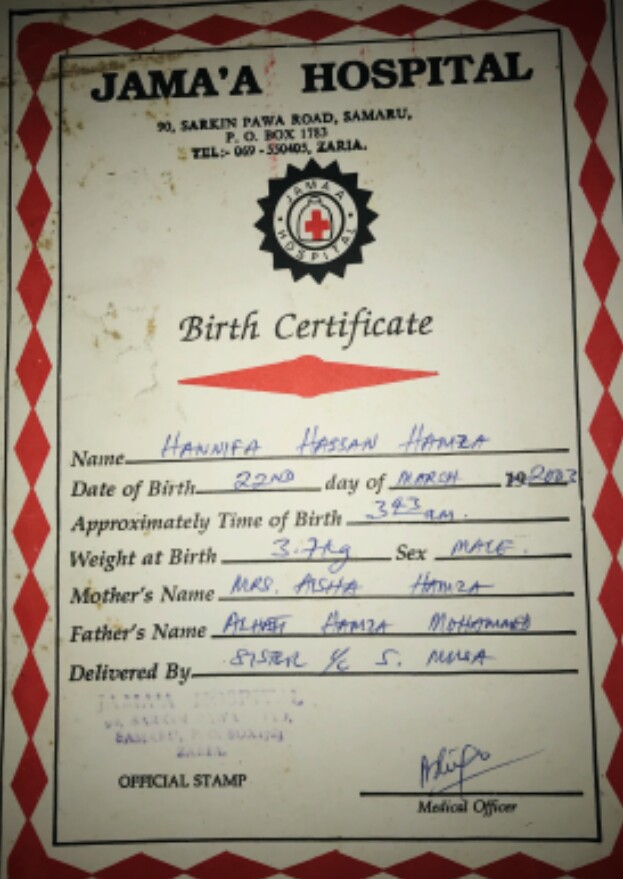 JAMA'A HOSPITAL
90, SARKIN PAWA ROAD, SAMARU,
P. O. BOX 1783
TEL:- 069 - 550405, ZARIA.
JAMAA HOSPITAL
Birth Certificate
Name HANNIFA HASSAN HAMZA
Date of Birth 22ND day of MARCH 19 2003
Approximately Time of Birth 343 am.
Weight at Birth 3.7kg Sex MALE.
Mother's Name MRS. AISHA HAMZA
Father's Name ALHAJI HAMZA MOHAMMED
Delivered By SISTER I/C S. MUSA
JAMA'A HOSPITAL
ZARIA.
OFFICIAL STAMP
Medical Officer